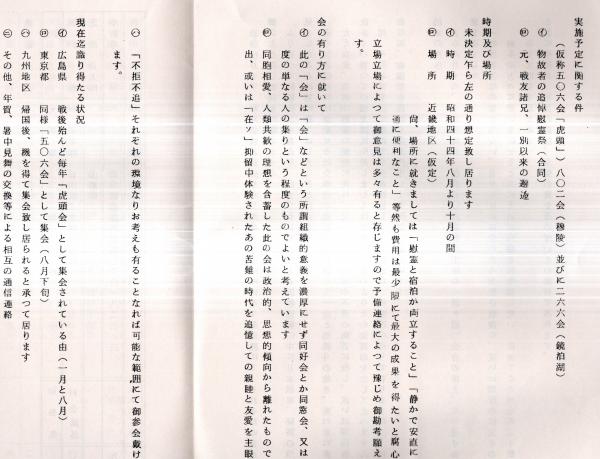 実施予定に関する件
㋑ 物故者の追悼慰霊祭(合同)
(仮称五〇六会「虎頭」)八〇二会(穆陵)並びに二六六会(鏡泊湖)
㋺ 元、戦友諸兄、一別以来の邂逅
時期及び場所
未決定乍ら左の通り想定致し居ります
㋑ 時期 昭和四十四年八月より十月の間
㋺ 場所 近畿地区(仮定)
尚、場所に就きましては「慰霊と宿泊が両立すること」「静かで安直に
通に便利なこと」等然も費用は最少限にて最大の成果を得たいと腐心
立場立場によつて御意見は多々有ると存じますので予備連絡によつて予じめ御勘考願え
す。
会の有り方に就いて
㋑ 此の「会」は「会」などという所謂組織的意義を濃厚にせず同好会とか同窓会、又は
度の単なる人の集りという程度のものでよいと考えています
㋺ 同胞相愛、人類共歓の理想を含蓄した此の会は政治的、思想的傾向から離れたもので
出、或いは「在ソ」抑留中体験されたあの苦難の時代を追憶しての親睦と友愛を主眼
㋩ 「不拒不追」それぞれの環境なりお考えも有ることなれば可能な範囲にて御参会戴け
ます。
現在迄識り得たる状況
㋑ 広島県 戦後殆んど毎年「虎頭会」として集会されている由(一月と八月)
㋺ 東京都 同様「五〇六会」として集会(八月下旬)
㋩ 九州地区 帰国後、機を得て集会致し居られると承つて居ります
㊁ その他、年賀、暑中見舞の交換等による相互の通信連絡